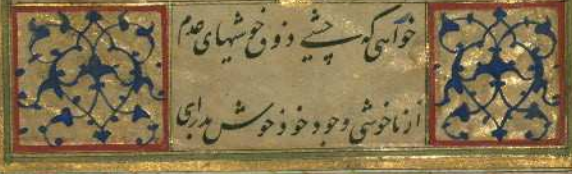 خواهی که چشی ذوق خوشیهای عدم
از ناخوشی وجود خود خوش بدرآی